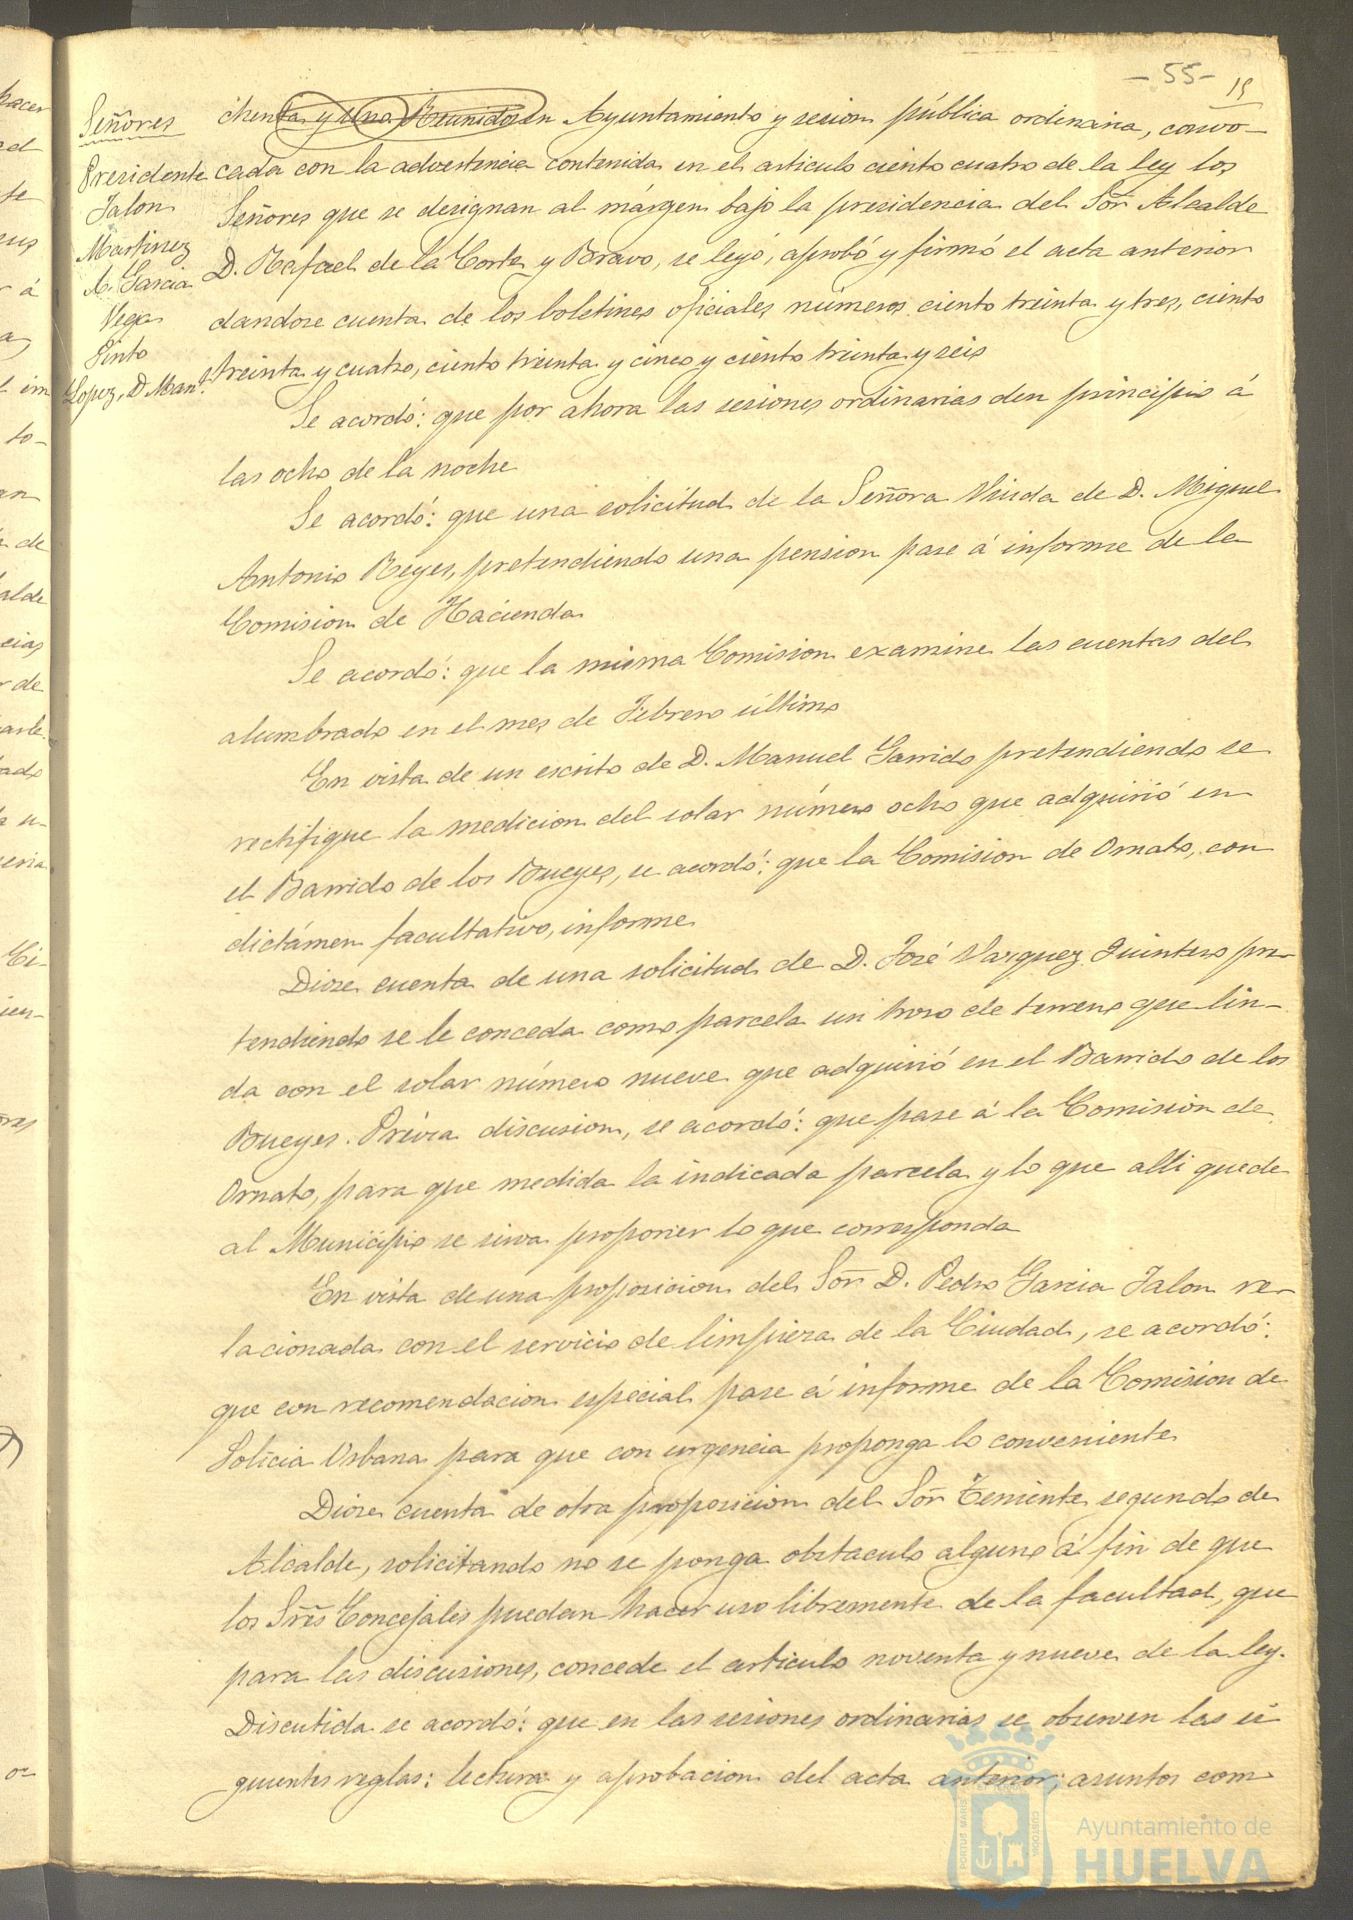 -55-
15
Señores
Presidente
Jalon
Martinez
A. Garcia
Vega
Pinto
Lopez, D. Man.l
chenta y una Reunidos en Ayuntamiento y sesion pública ordinaria, convo-
cada con la advertencia contenida en el articulo ciento cuatro de la ley los
Señores que se designan al márgen bajo la presidencia del Sor. Alcalde
D. Rafael de la Corte y Bravo, se leyó, aprobó y firmó el acta anterior
dandose cuenta de los boletines oficiales números ciento treinta y tres, ciento
treinta y cuatro, ciento treinta y cinco y ciento treinta y seis
Se acordó: que por ahora las sesiones ordinarias den principio á
las ocho de la noche
Se acordó: que una solicitud de la Señora Viuda de D. Miguel
Antonio Reyes, pretendiendo una pension pase á informe de la
Comision de Hacienda
Se acordó: que la misma Comision examine las cuentas del
alumbrado en el mes de Febrero último
En vista de un escrito de D. Manuel Garrido pretendiendo se
rectifique la medicion del solar número ocho que adquirió en
el Barrido de los Bueyes, se acordó: que la Comision de Ornato, con
dictámen facultativo, informe
Diose cuenta de una solicitud de D. José Vazquez Quintero pre-
tendiendo se le conceda como parcela un trozo de terreno que lin-
da con el solar número nueve que adquirió en el Barrido de los
Bueyes. Prévia discusion, se acordó: que pase á la Comision de
Ornato, para que medida la indicada parcela y lo que alli quede
al Municipio se sirva proponer lo que corresponda
En vista de una proposicion del Sor. D. Pedro Garcia Jalon re-
lacionada con el servicio de limpieza de la Ciudad, se acordó:
que con recomendacion especial pase á informe de la Comision de
Policia Urbana para que con urgencia proponga lo conveniente
Diose cuenta de otra proposicion del Sor. Teniente segundo de
Alcalde, solicitando no se ponga obstaculo alguno á fin de que
los Sres. Concejales puedan hacer uso libremente de la facultad, que
para las discusiones, concede el articulo noventa y nueve de la ley.
Discutida se acordó: que en las sesiones ordinarias se observen las si
guientes reglas: lectura y aprobacion del acta anterior; asuntos com
PORTUS MARIS ET TERRAE CUSTODIA
Ayuntamiento de
HUELVA